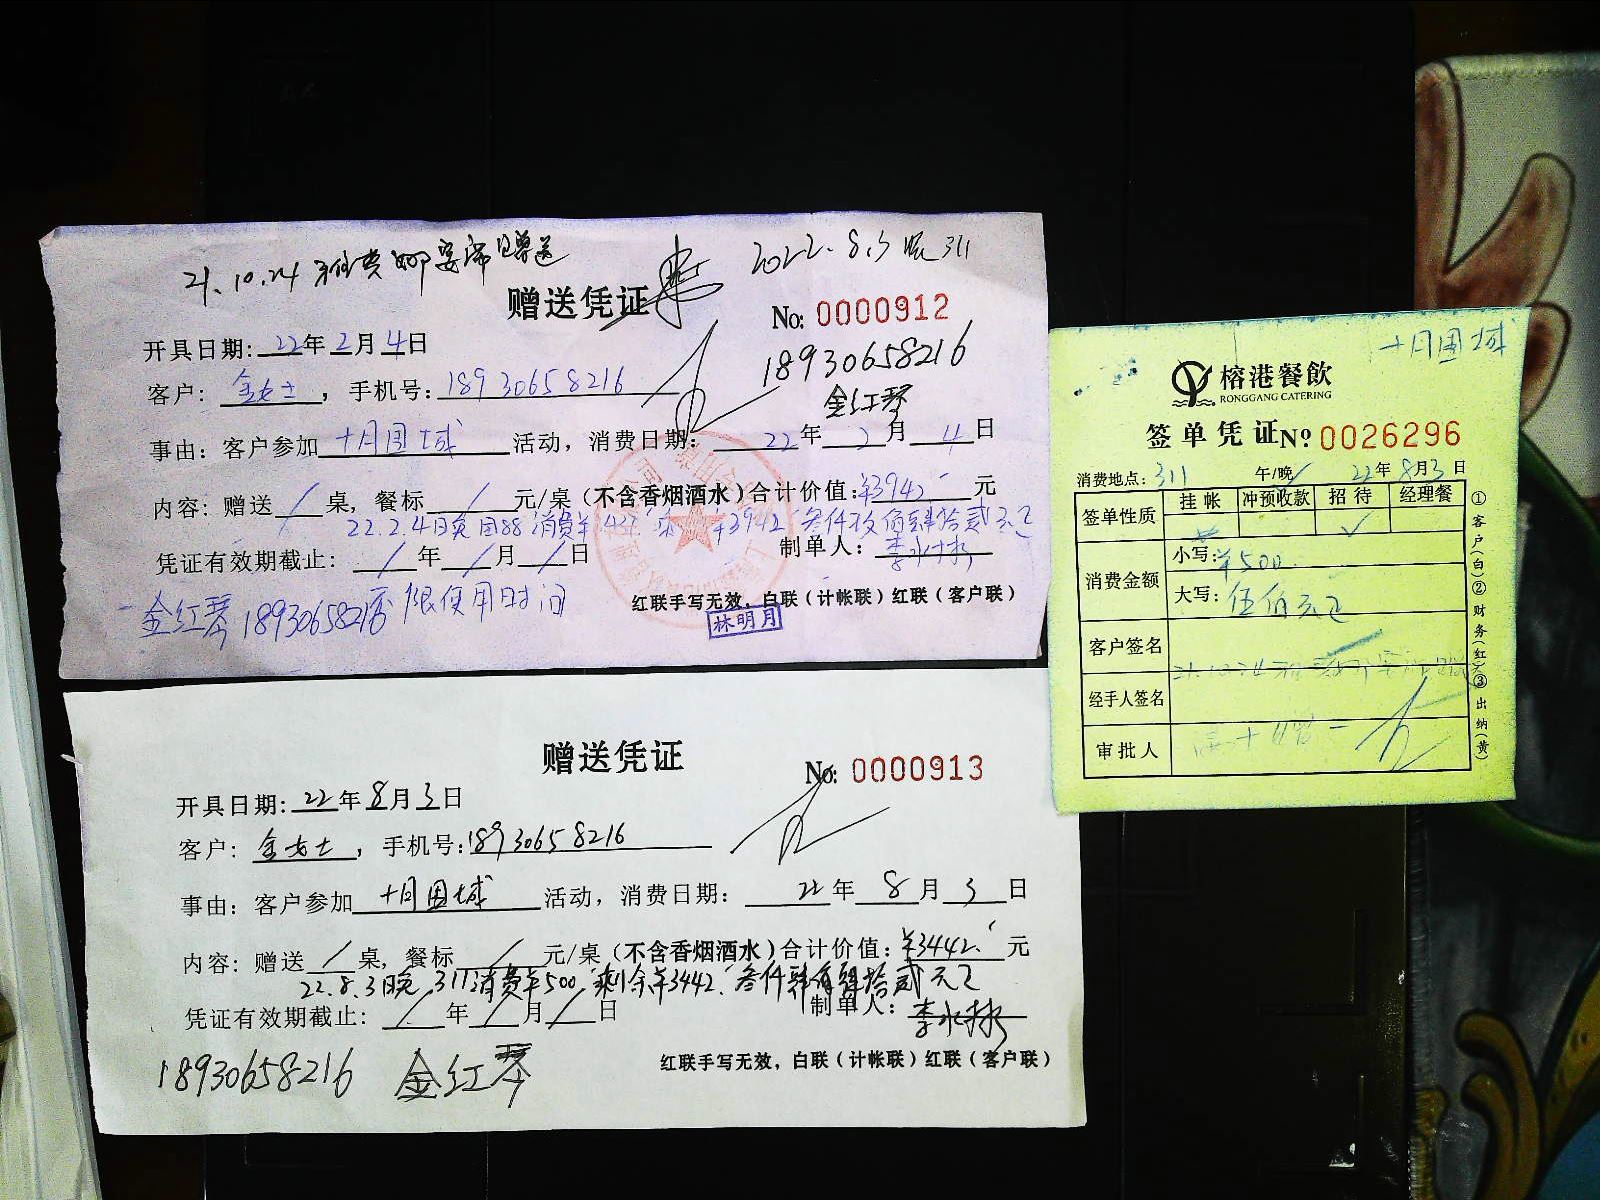 21.10.24 宴席赠送
2022.8.3晚311
赠送凭证
No: 0000912
开具日期: 22年2月4日
18930658216
客户: 金女士, 手机号: 18930658216
金红琴
事由: 客户参加十月围城活动, 消费日期: 22年2月4日
内容: 赠送/桌, 餐标/元/桌(不含香烟酒水)合计价值: ¥3942元
22.2.4日晚 消费 ¥3942 叁仟玖佰肆拾贰元正
凭证有效期截止: /年/月/日 制单人: 李永林
红联手写无效, 白联(计帐联)红联(客户联)
金红琴 18930658216 不限使用时间
林明月
赠送凭证
No: 0000913
开具日期: 22年8月3日
客户: 金女士, 手机号: 18930658216
事由: 客户参加十月围城活动, 消费日期: 22年8月3日
内容: 赠送/桌, 餐标/元/桌(不含香烟酒水)合计价值: ¥3442.元
22.8.3日晚 311消费¥500 剩余¥3442 叁仟肆佰肆拾贰元正
凭证有效期截止: /年/月/日 制单人: 李永林
红联手写无效, 白联(计帐联)红联(客户联)
18930658216 金红琴
十月围城
榕港餐飲
RONGGANG CATERING
签单凭证 No 0026296
消费地点: 311 午/晚 22年8月3日
签单性质 挂帐 冲预收款 招待 经理餐
✓
消费金额 小写: ¥500
大写: 伍佰元正
客户签名
21.10.24
经手人签名
审批人
①客户(白)②财务(红)③出纳(黄)